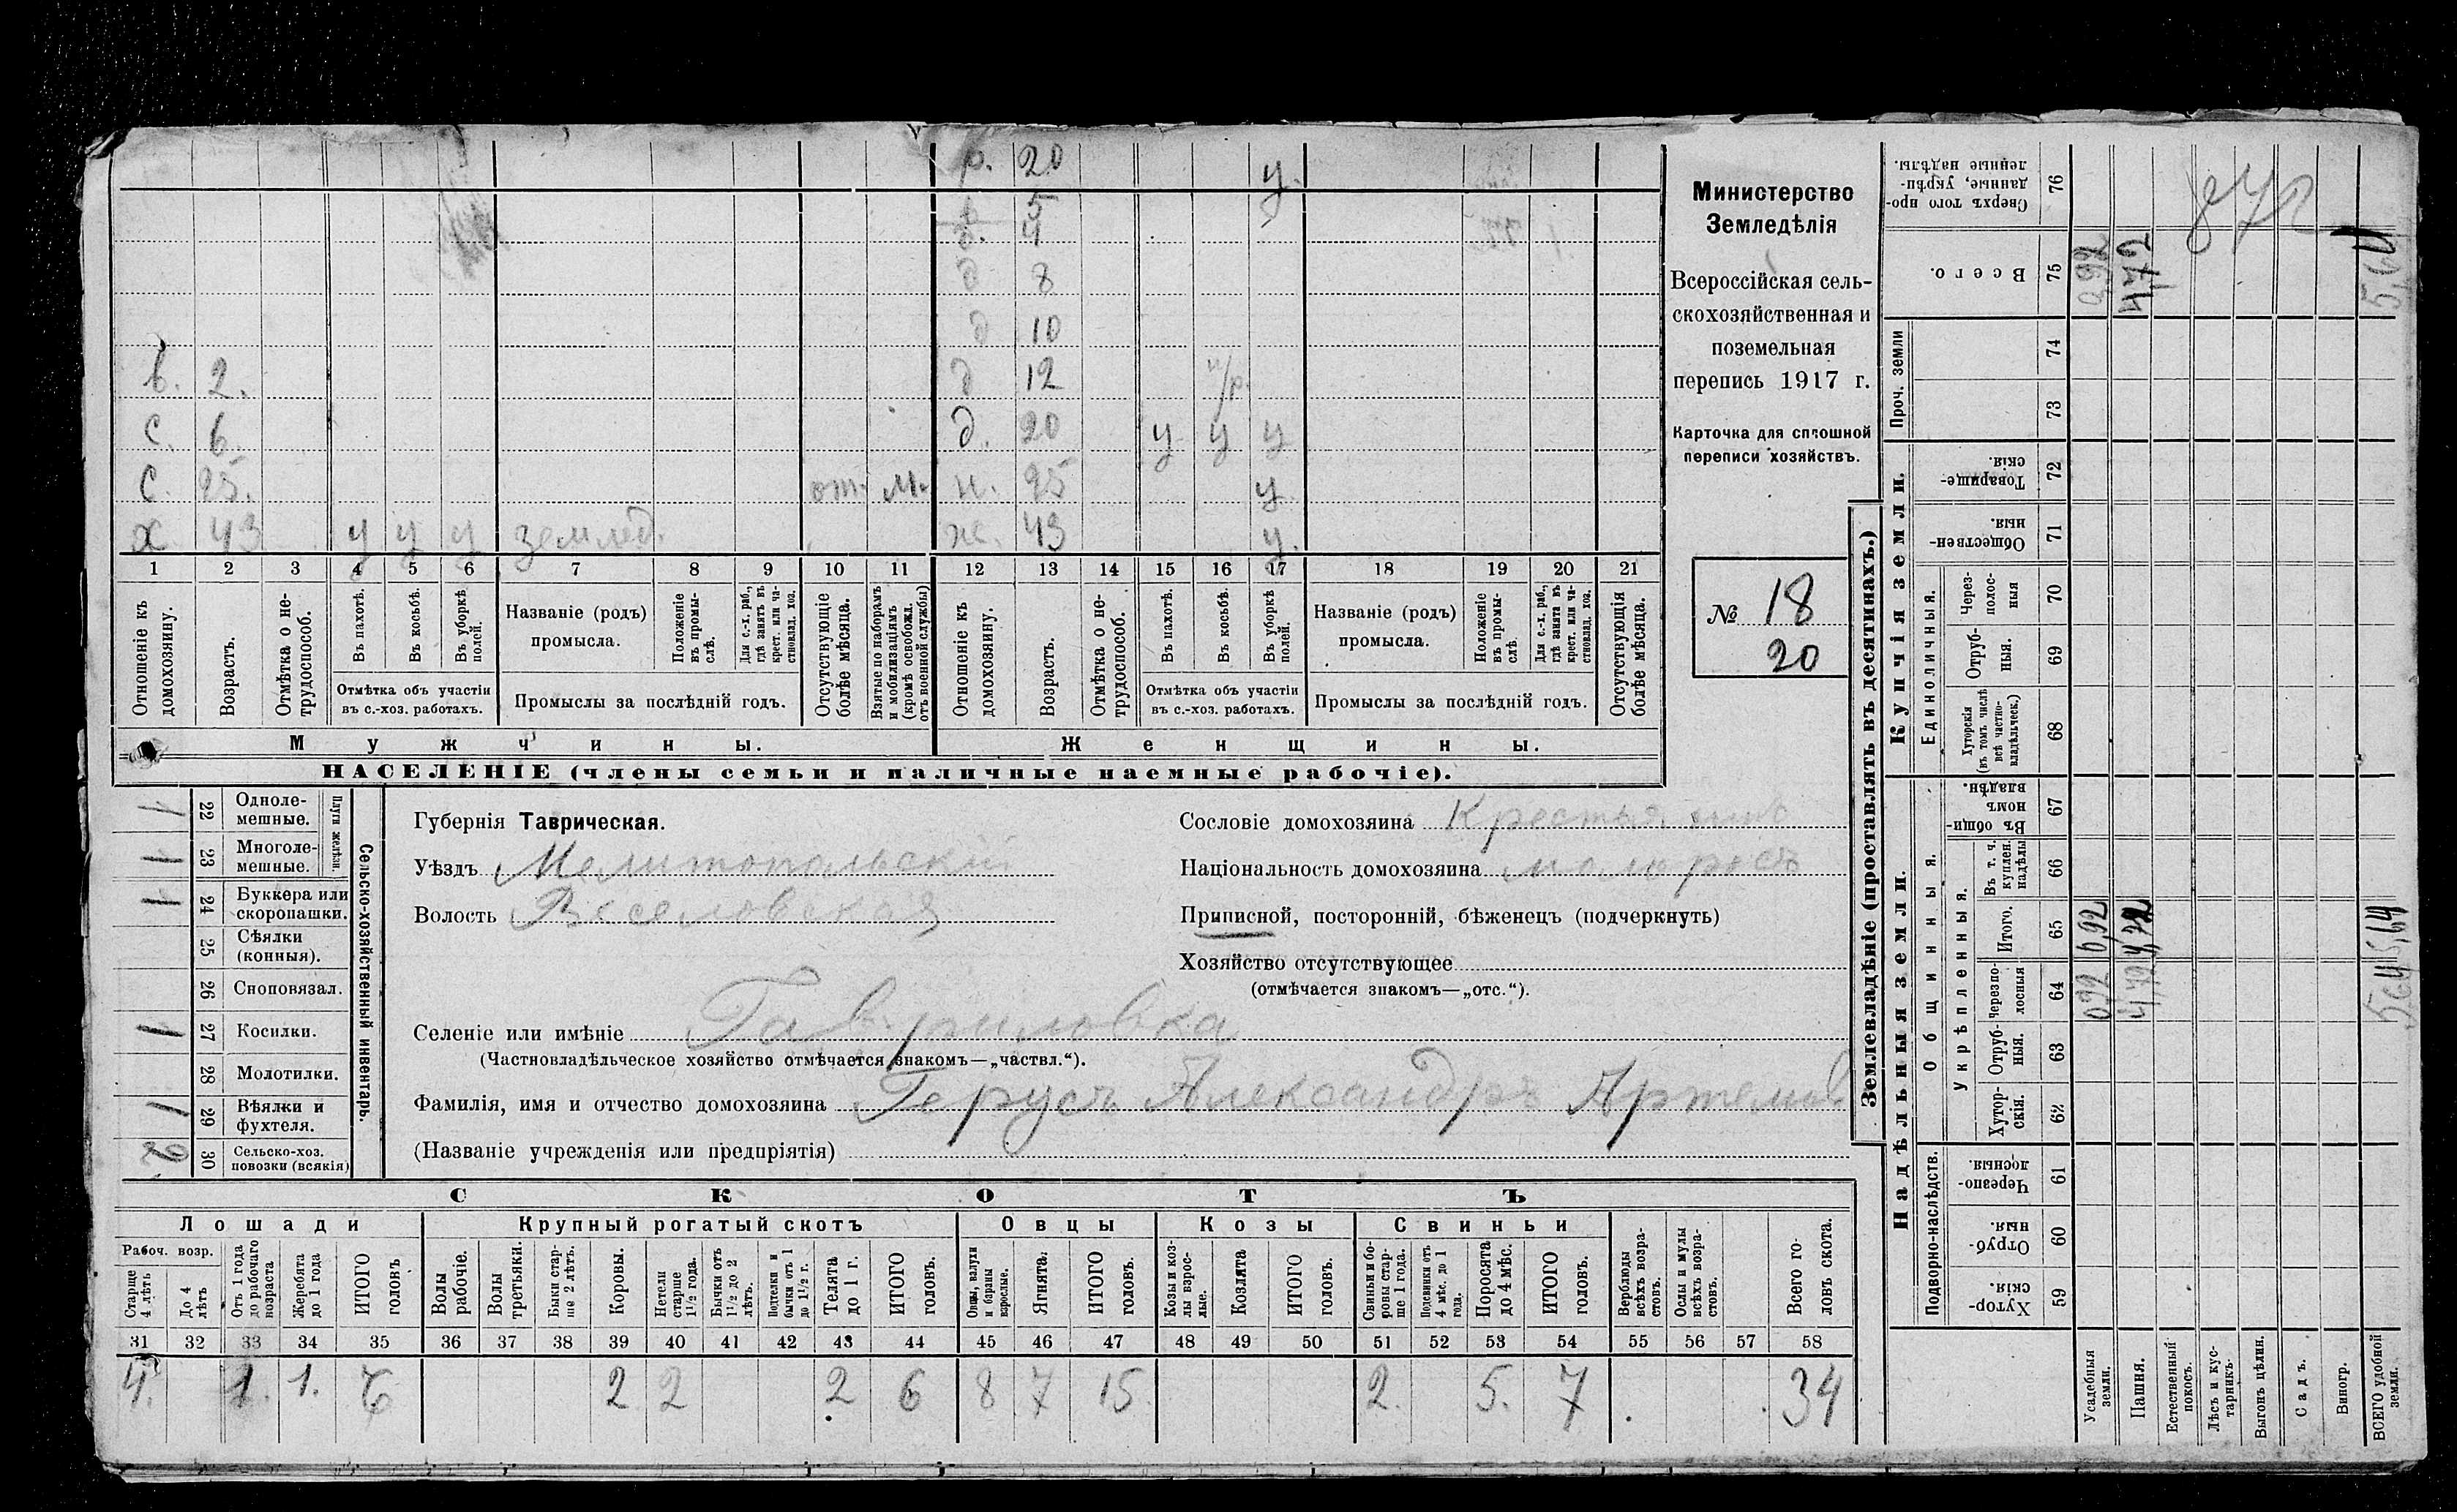 р. 20 у.
5
д. 4
д 8
д 10
в. 2. д 12 н/р.
с. 6. д. 20 у у у
с. 25. от. м. н. 25 у
х 43 у у у землед. ж. 43 у.
1 2 3 4 5 6 7 8 9 10 11 12 13 14 15 16 17 18 19 20 21
Отношеніе къ домохозяину.
Возрастъ.
Отмѣтка о не-
трудоспособ.
Въ пахотѣ.
Въ косьбѣ.
Въ уборкѣ полей.
Отмѣтка объ участіи
въ с.-хоз. работахъ.
Названіе (родъ)
промысла.
Положеніе
въ промы-
слѣ.
Для с.-х. раб.,
гдѣ занятъ въ
крест. или ча-
стновлад. хоз.
Промыслы за послѣдній годъ.
Отсутствующіе
болѣе мѣсяца.
Взятые по наборамъ
и мобилизаціямъ
(кромѣ освобожд.
отъ военной службы)
Отношеніе къ
домохозяину.
Возрастъ.
Отмѣтка о не-
трудоспособ.
Въ пахотѣ.
Въ косьбѣ.
Въ уборкѣ
полей.
Отмѣтка объ участіи
въ с.-хоз. работахъ.
Названіе (родъ)
промысла.
Положеніе
въ промы-
слѣ.
Для с.-х. раб.,
гдѣ занята въ
крест. или ча-
стновлад. хоз.
Промыслы за послѣдній годъ.
Отсутствующія
болѣе мѣсяца.
Мужчины.
Женщины.
НАСЕЛЕНІЕ (члены семьи и наличные наемные рабочіе).
Министерство
Земледѣлія
Всероссійская сель-
скохозяйственная и
поземельная
перепись 1917 г.
Карточка для сплошной
переписи хозяйствъ.
№ 18
20
1 22 Одноле-
мешные.
1 23 Многоле-
мешные.
Плуги желѣзн.
1 24 Буккера или
скоропашки.
25 Сѣялки
(конныя).
26 Сноповязал.
1 27 Косилки.
28 Молотилки.
1 29 Вѣялки и
фухтеля.
2 30 Сельско-хоз.
повозки (всякія)
Сельско-хозяйственный инвентарь.
Губернія Таврическая.
Уѣздъ Мелитопольскій
Волость Веселовская
Сословіе домохозяина Крестьянинъ
Національность домохозяина малоросъ
Приписной, посторонній, бѣженецъ (подчеркнуть)
Хозяйство отсутствующее
(отмѣчается знакомъ—„отс.“).
Селеніе или имѣніе Гавриловка
(Частновладѣльческое хозяйство отмѣчается знакомъ—„частвл.“).
Фамилія, имя и отчество домохозяина Герусъ Александръ Артемов
(Названіе учрежденія или предпріятія)
СКОТЪ
Лошади
Крупный рогатый скотъ
Овцы
Козы
Свиньи
Рабоч. возр.
Старше
4 лѣтъ
До 4
лѣтъ
Отъ 1 года
до рабочаго
возраста
Жеребята
до 1 года
ИТОГО
головъ
Волы
рабочіе.
Волы
третьяки.
Быки стар-
ше 2 лѣтъ.
Коровы.
Нетели
старше
1½ года.
Бычки отъ
1½ до 2
лѣтъ.
Подтелки и
бычки отъ 1
до 1½ г.
Телята
до 1 г.
ИТОГО
головъ.
Овцы, валухи
и бараны
взрослые.
Ягнята.
ИТОГО
головъ.
Козы и коз-
лы взрос-
лые.
Козлята
ИТОГО
головъ.
Свиньи и бо-
ровы стар-
ше 1 года.
Подсвинки отъ
4 мѣс. до 1
года.
Поросята
до 4 мѣс.
ИТОГО
головъ.
Верблюды
всѣхъ возра-
стовъ.
Ослы и мулы
всѣхъ возра-
стовъ.
Всего го-
ловъ скота.
31 32 33 34 35 36 37 38 39 40 41 42 43 44 45 46 47 48 49 50 51 52 53 54 55 56 57 58
4. 1. 1. 6 2 2 2 6 8 7 15 2. 5. 7 34
Землевладѣніе (проставлять въ десятинахъ.)
Надѣльныя земли.
Купчія земли.
Проч. земли
Сверхъ того про-
данные, укрѣп-
ленные надѣлы.
76
Всего.
75 0,92 4,72 5,64
74
73
Товарище-
скія.
72
Обществен-
ныя.
71
Единоличныя.
Через-
полос-
ныя
70
Отруб-
ныя.
69
Хуторскія
(въ томъ числѣ
всѣ частно-
владѣльческ.)
68
Общинныя.
Въ общин-
номъ
владѣн.
67
Укрѣпленныя.
Въ т. ч.
куплен.
надѣлы
66
Итого.
65 0,92 4,72 5,64
Черезпо-
лосныя
64 0,92 4,72 5,64
Отруб-
ныя.
63
Хутор-
скія.
62
Подворно-наслѣдств.
Черезпо-
лосныя.
61
Отруб-
ныя.
60
Хутор-
скія.
59
Усадебныя
земли.
Пашня.
Естественный
покосъ.
Лѣсъ и кус-
тарникъ.
Выгонъ цѣлин.
Садъ.
Виногр.
ВСЕГО удобной
земли.